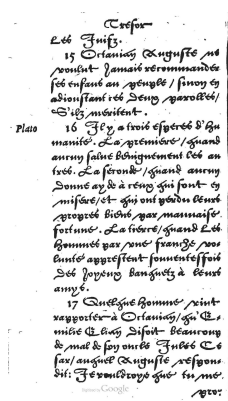 Tresor
Les Juifz.
15 Octavian Auguste ne
voulut jamais recommander
ses enfans au peuple / sinon en
adioustant ces deux parolles /
S'ilz meritent.
Plato
16 Il y a trois especes d'hu
manité. La premiere / quand
aucun salue benignement les au
tres. La seconde / quand aucun
donne ayde à ceux qui sont en
misere / et qui ont perdu leurs
propres biens par mauvaise
fortune. La tierce / quand les
hommes par une franche vo
lunté apprestent souventesfois
des joyeux banquetz à leurs
amys.
17 Quelque homme vint
rapporter à Octavian / qu'E
milie Elian disoit beaucoup
de mal de son oncle Jules Ce
sar / auquel Auguste respon
dit: Je vouldroye que tu me
pro:
Digitized by Google